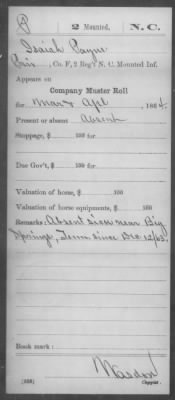 P | 2 Mounted. | N. C.
Isaiah Payne
Pvt., Co. F, 2 Reg't N. C. Mounted Inf.
Appears on
Company Muster Roll
for Mar & Apl, 1864.
Present or absent Absent
Stoppage, $ 100 for
Due Gov't, $ 100 for
Valuation of horse, $ 100
Valuation of horse equipments, $ 100
Remarks: Absent sick near Big
Springs, Tenn since Dec 12/63.
Book mark:
(858) Copyist.